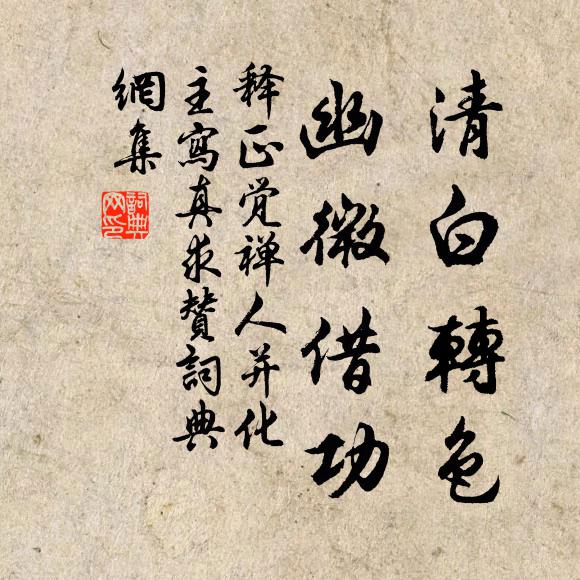 清白轉色
幽微借功
释正觉禅人并化
主寫真求贊詞典
網集
詞典網印